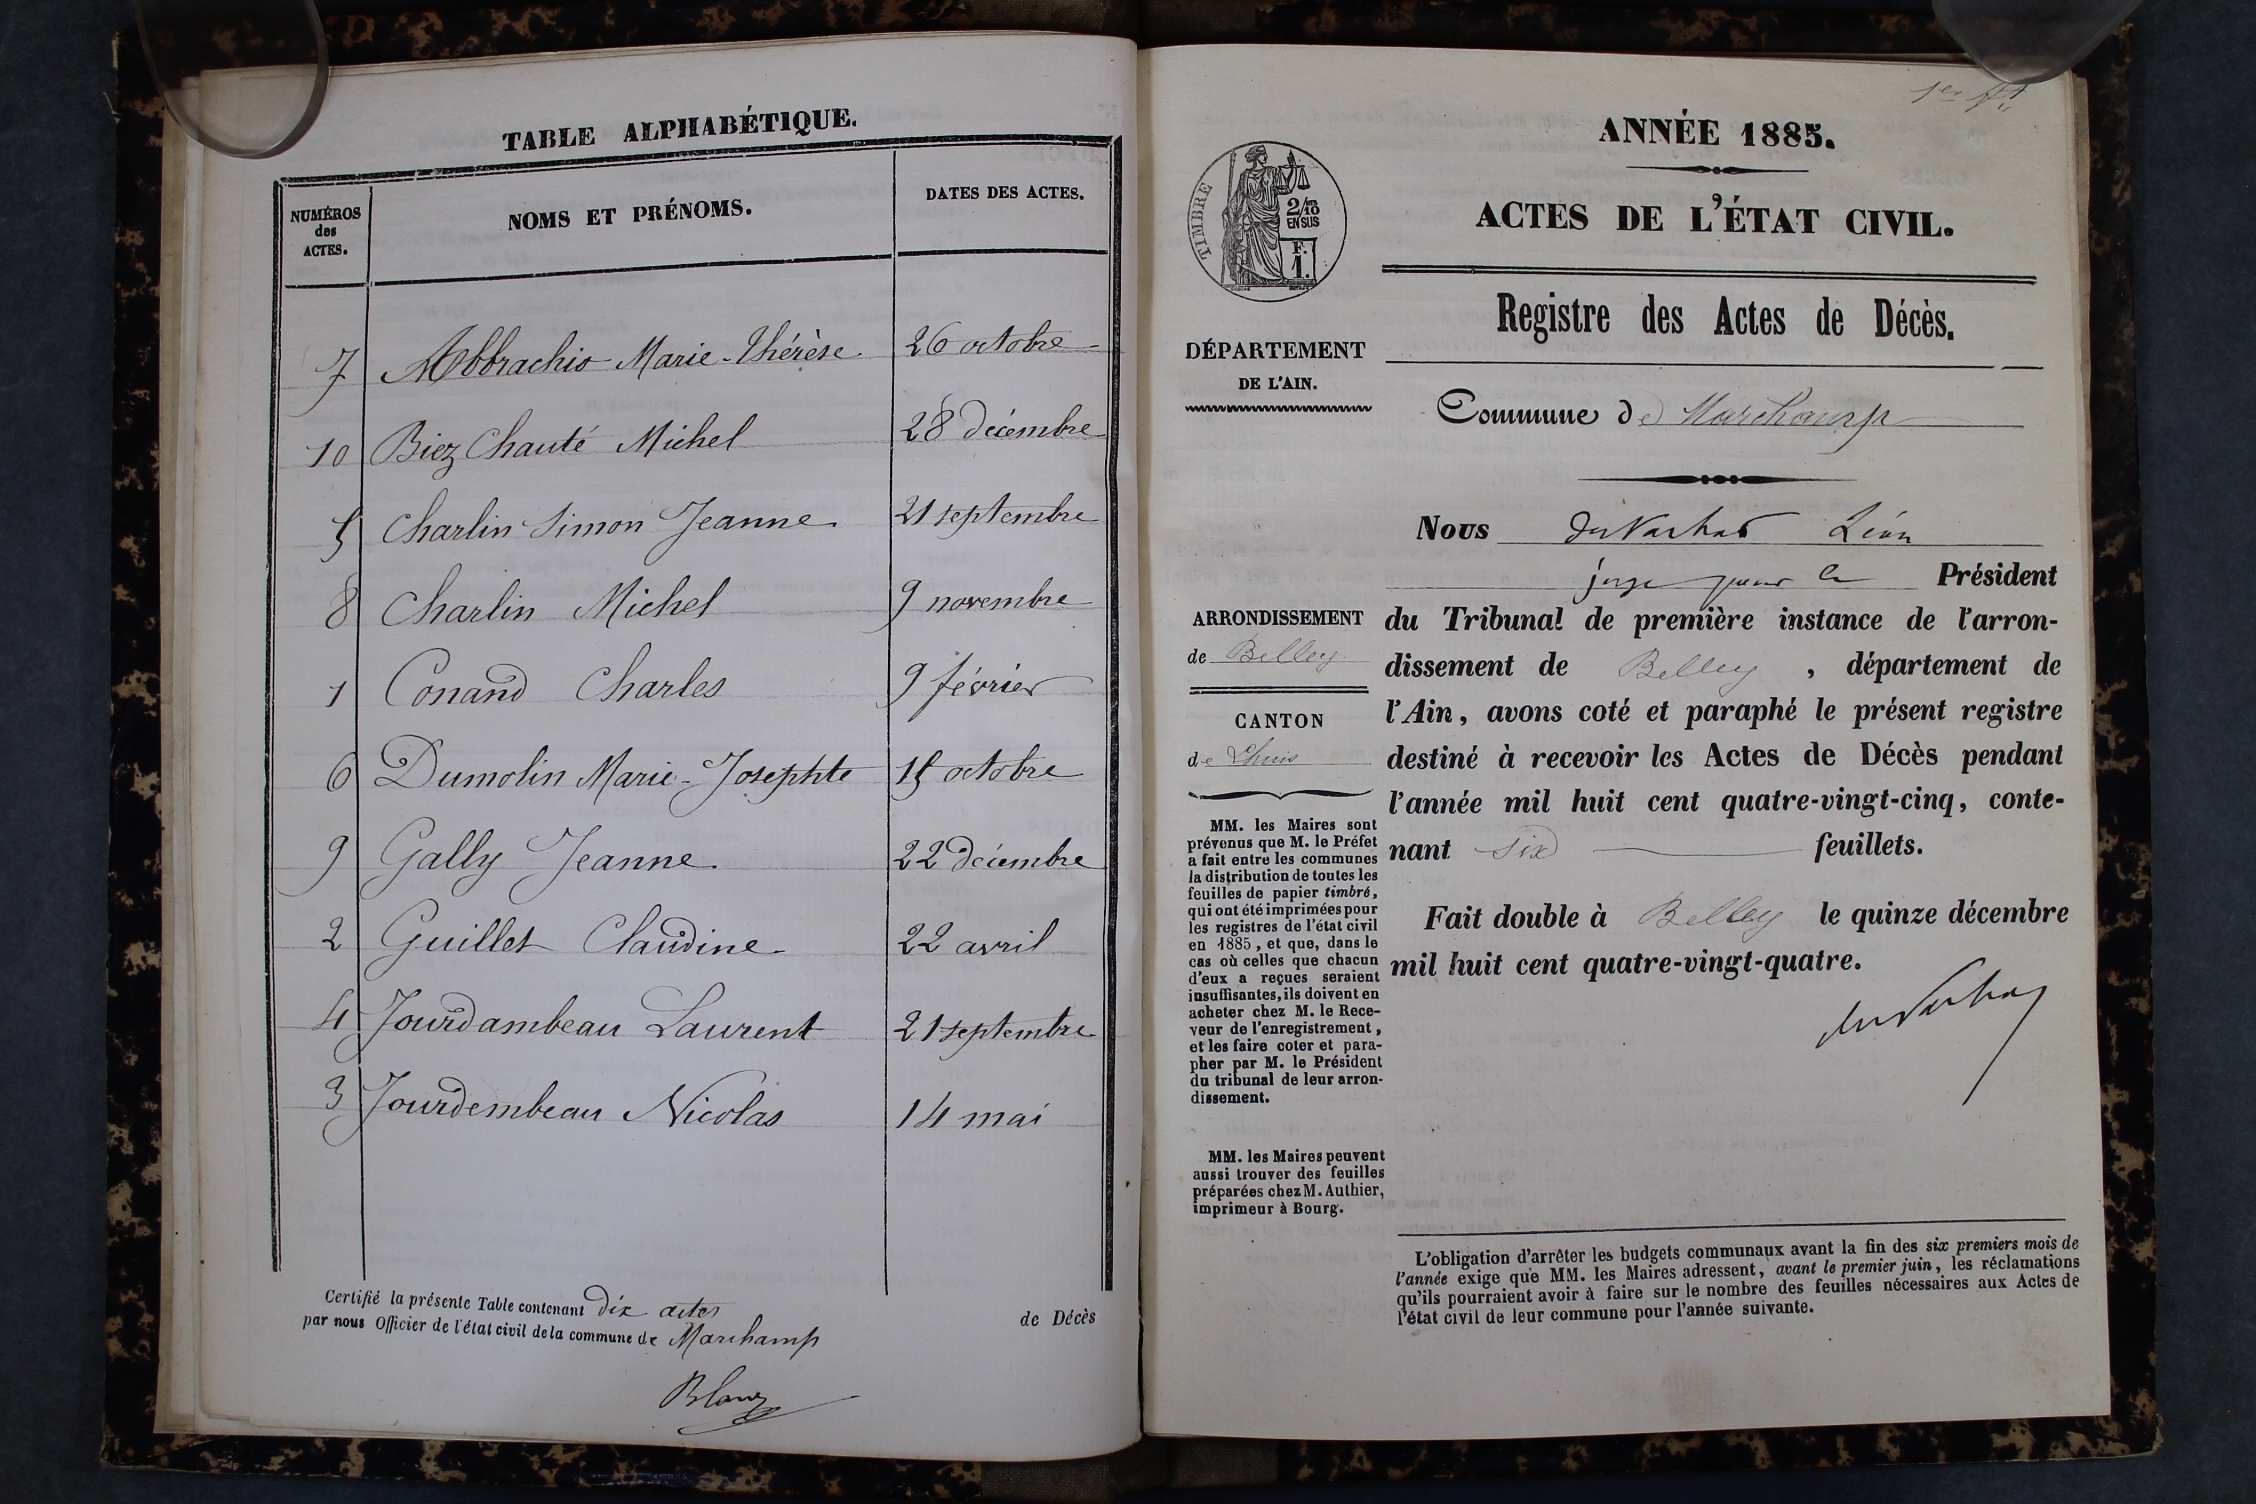 TABLE ALPHABÉTIQUE.
NUMÉROS des ACTES.
NOMS ET PRÉNOMS.
DATES DES ACTES.
7 Abbrachio Marie-Thérèse 26 octobre
10 Biez Chauté Michel 28 décembre
5 Charlin Simon Jeanne 21 septembre
8 Charlin Michel 9 novembre
1 Conand Charles 9 février
6 Dumolin Marie-Josephte 15 octobre
9 Gally Jeanne 22 décembre
2 Guillet Claudine 22 avril
4 Jourdambeau Laurent 21 septembre
3 Jourdembeau Nicolas 14 mai
Certifié la présente Table contenant dix actes de Décès
par nous Officier de l'état civil de la commune de Marchamp
Blanc
1er
ANNÉE 1885.
ACTES DE L'ÉTAT CIVIL.
TIMBRE
2/10 EN SUS
F. 1.
Registre des Actes de Décès.
DÉPARTEMENT
DE L'AIN.
Commune de Marchamp
Nous Léon
juge pour le Président
du Tribunal de première instance de l'arron-
dissement de Belley, département de
l'Ain, avons coté et paraphé le présent registre
destiné à recevoir les Actes de Décès pendant
l'année mil huit cent quatre-vingt-cinq, conte-
nant six feuillets.
Fait double à Belley le quinze décembre
mil huit cent quatre-vingt-quatre.
ARRONDISSEMENT
de Belley
CANTON
de Lhuis
MM. les Maires sont
prévenus que M. le Préfet
a fait entre les communes
la distribution de toutes les
feuilles de papier timbré,
qui ont été imprimées pour
les registres de l'état civil
en 1885, et que, dans le
cas où celles que chacun
d'eux a reçues seraient
insuffisantes, ils doivent en
acheter chez M. le Rece-
veur de l'enregistrement,
et les faire coter et para-
pher par M. le Président
du tribunal de leur arron-
dissement.
MM. les Maires peuvent
aussi trouver des feuilles
préparées chez M. Authier,
imprimeur à Bourg.
L'obligation d'arrêter les budgets communaux avant la fin des six premiers mois de
l'année exige que MM. les Maires adressent, avant le premier juin, les réclamations
qu'ils pourraient avoir à faire sur le nombre des feuilles nécessaires aux Actes de
l'état civil de leur commune pour l'année suivante.